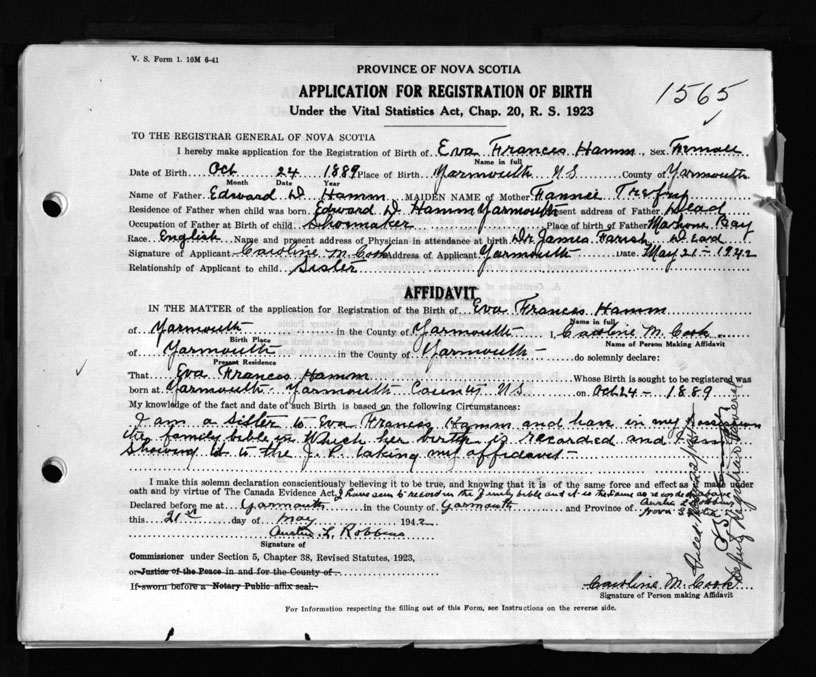 V. S. Form 1. 10M 6-41
PROVINCE OF NOVA SCOTIA
APPLICATION FOR REGISTRATION OF BIRTH
1565
Under the Vital Statistics Act, Chap. 20, R. S. 1923
TO THE REGISTRAR GENERAL OF NOVA SCOTIA
I hereby make application for the Registration of Birth of Eva Frances Hamm Sex Female
Name in full
Date of Birth Oct 24 1889 Place of Birth Yarmouth N S County of Yarmouth
Month Date Year
Name of Father Edward D Hamm MAIDEN NAME of Mother Fannie Trefry
Residence of Father when child was born Edward D Hamm Yarmouth Present address of Father Dead
Occupation of Father at Birth of child Shoemaker Place of birth of Father Mahone Bay
Race English Name and present address of Physician in attendance at birth Dr James Farish Dead
Signature of Applicant Caroline M. Cook Address of Applicant Yarmouth Date May 21 - 1942
Relationship of Applicant to child Sister
AFFIDAVIT
IN THE MATTER of the application for Registration of the Birth of Eva Frances Hamm
Name in full
of Yarmouth in the County of Yarmouth I, Caroline M. Cook
Birth Place Name of Person Making Affidavit
of Yarmouth in the County of Yarmouth do solemnly declare:
Present Residence
That Eva Frances Hamm Whose Birth is sought to be registered was
born at Yarmouth Yarmouth County N S on Oct 24 - 1889
My knowledge of the fact and date of such Birth is based on the following Circumstances:
I am a sister to Eva Frances Hamm and have in my possession
the family bible in which her birth is recorded and I am
showing it to the J. P. taking my affidavit -
I make this solemn declaration conscientiously believing it to be true, and knowing that it is of the same force and effect as if made under
oath and by virtue of The Canada Evidence Act. I have seen record in the family bible and it is the same as recorded above
Declared before me at Yarmouth in the County of Yarmouth and Province of Nova Scotia
this 21st day of May 1942
Austin L. Robbins
Signature of
Commissioner under Section 5, Chapter 38, Revised Statutes, 1923,
or Justice of the Peace in and for the County of
If sworn before a Notary Public affix seal.
Caroline M. Cook
Signature of Person making Affidavit
Deputy Registrar
For Information respecting the filling out of this Form, see Instructions on the reverse side.